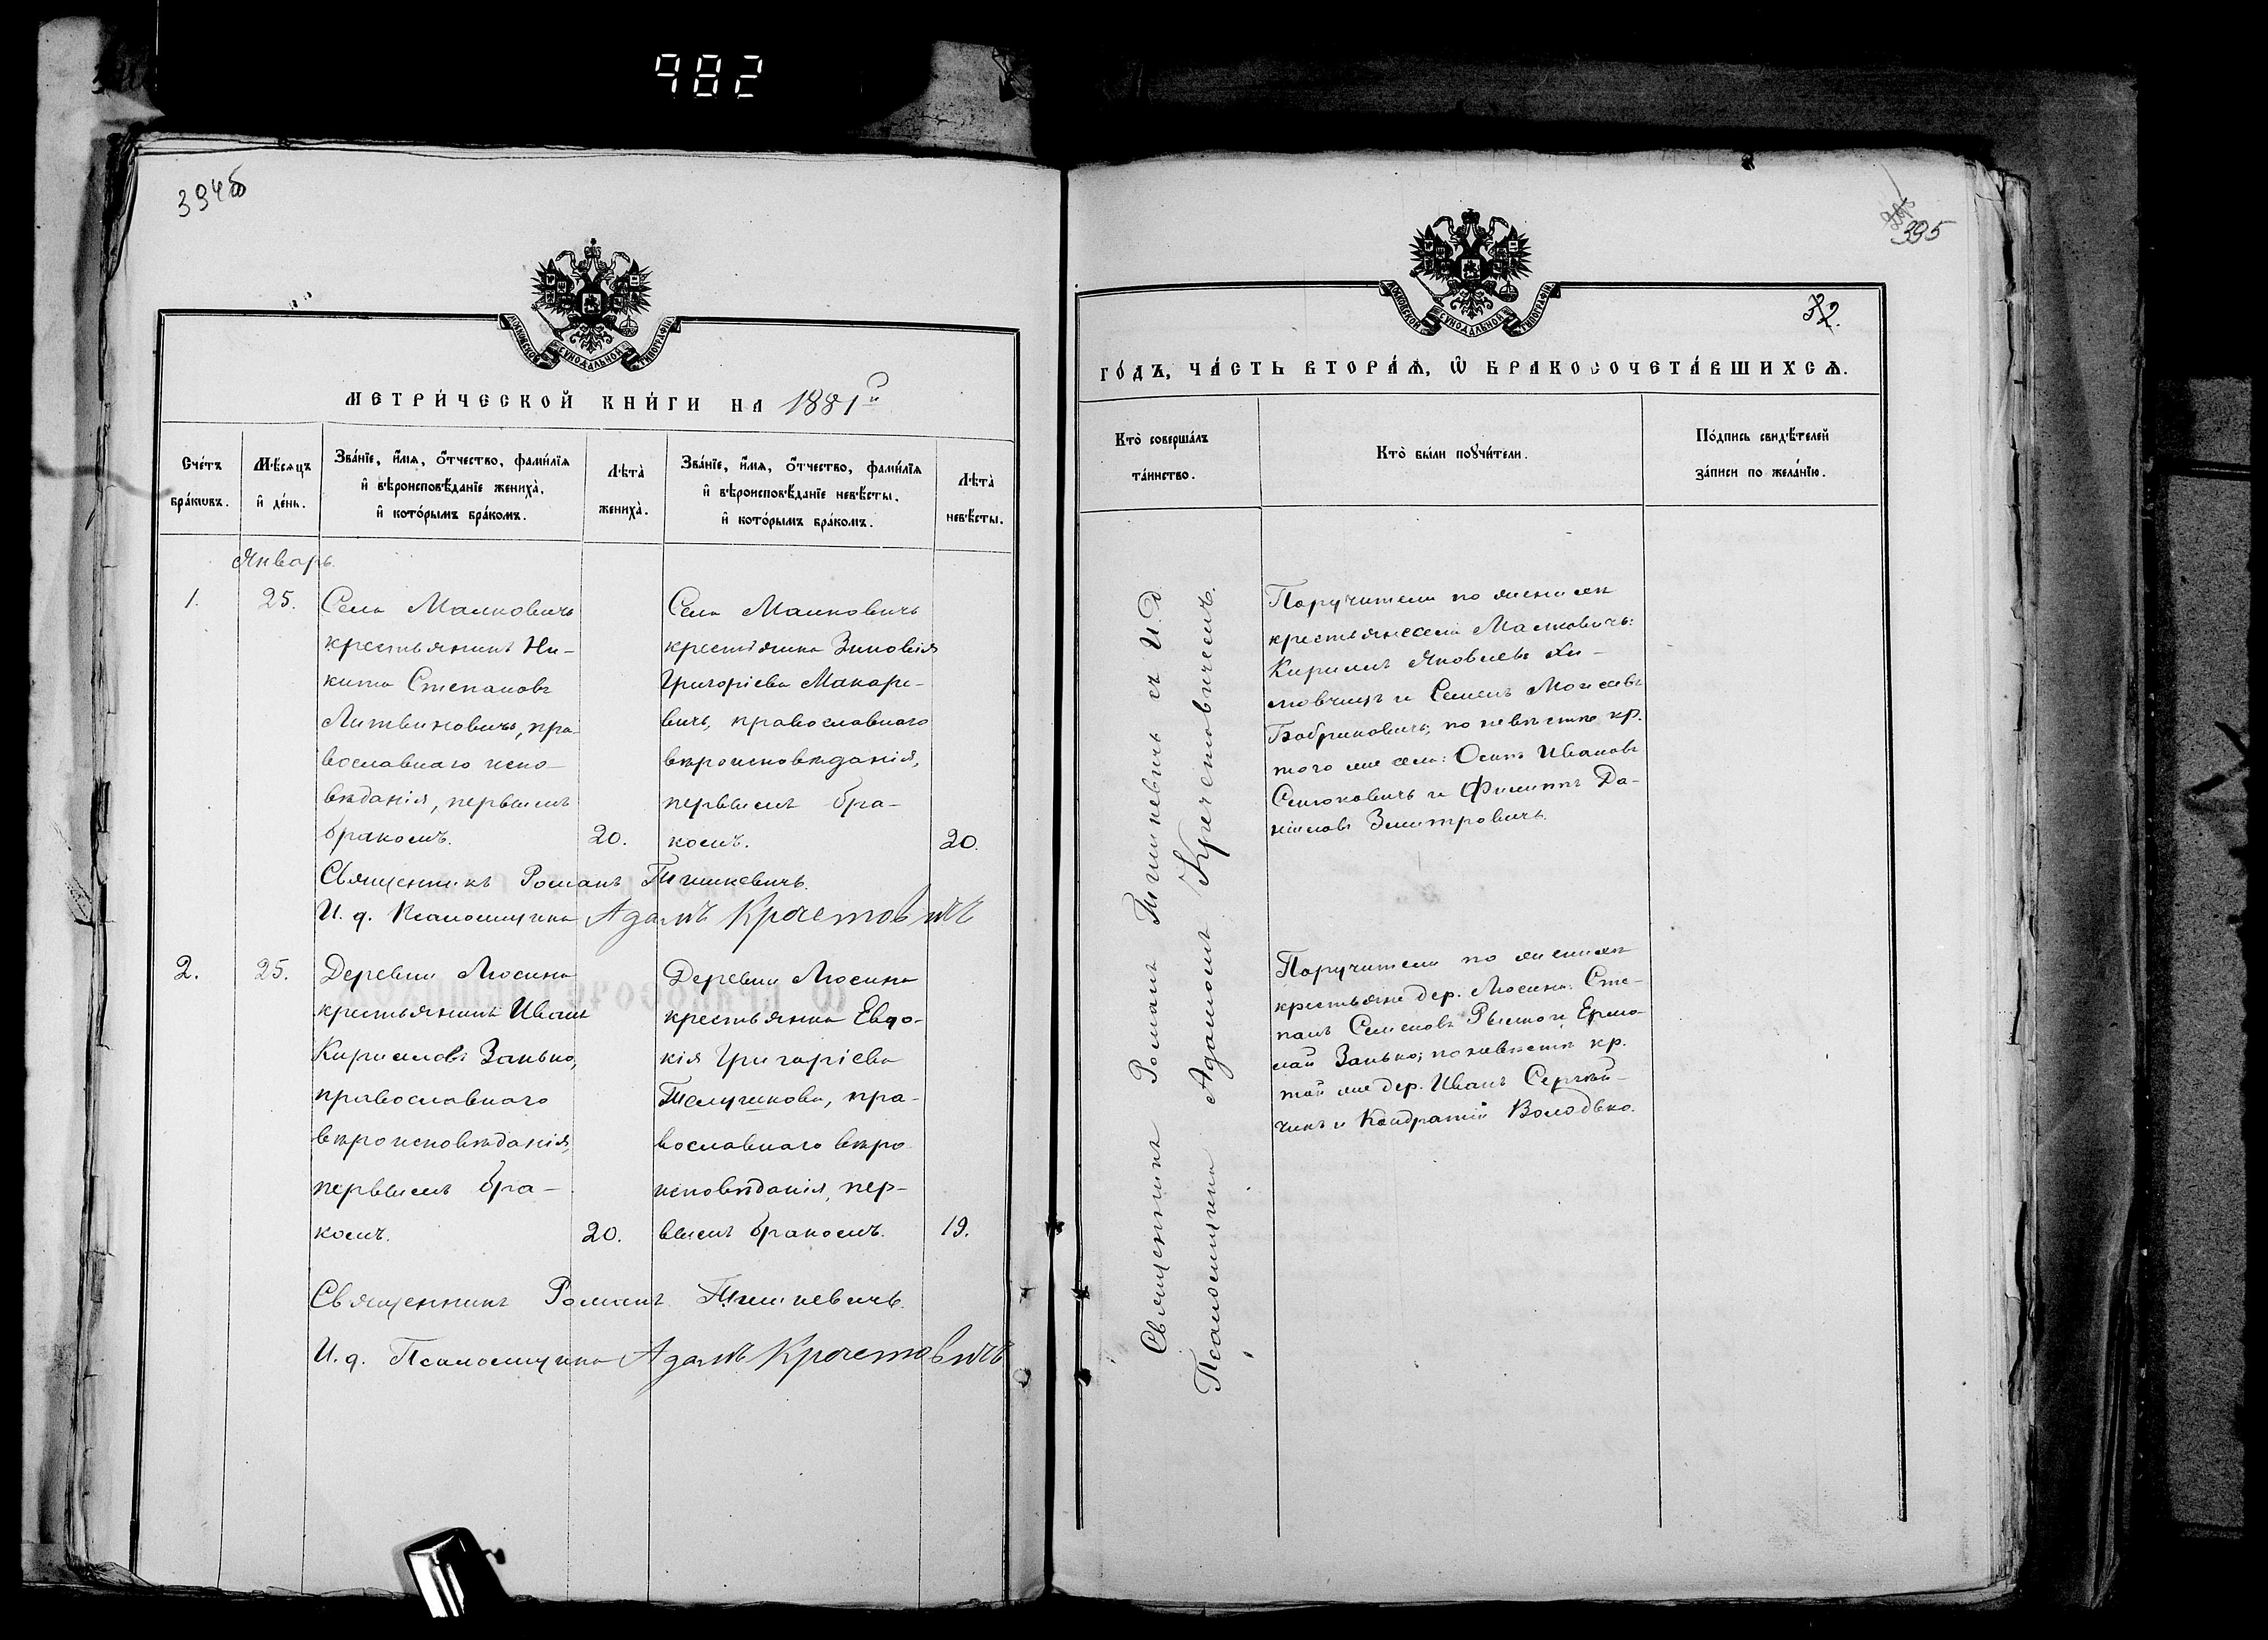 982
394об
МЕТРИ́ЧЕСКОЙ КНИ́ГИ НА 1881й
Сче́тъ бра́кѡвъ.
Мѣ́сяцъ и҆ де́нь.
Зва́нїе, и҆́мѧ, ѻ҆́тчество, фами́лїѧ
и҆ вѣроисповѣ́данїе жениха̀,
и҆ кото́рымъ бра́комъ.
Лѣта̀ жениха̀.
Зва́нїе, и҆́мѧ, ѻ҆́тчество, фами́лїѧ
и҆ вѣроисповѣ́данїе невѣ́сты,
и҆ кото́рымъ бра́комъ.
Лѣта̀ невѣ́сты.
Январь.
1.
25.
Села Малковичъ
крестьянинъ Ни-
кита Степановъ
Литвиновичъ, пра-
вославнаго испо-
вѣданія, первымъ
бракомъ.
20.
Села Малковичъ
крестьянка Зиновія
Григоріева Макаре-
вичъ, православнаго
вѣроисповѣданія,
первымъ бра-
комъ.
20.
Священникъ Романъ Тышкевичъ.
И. д. Псаломщика Адамъ Кречетовичъ
2.
25.
Деревни Люсина
крестьянинъ Иванъ
Кириловъ Занько,
православнаго
вѣроисповѣданія,
первымъ бра-
комъ.
20.
Деревни Люсина
крестьянка Евдо-
кія Григоріева
православнаго вѣро
исповѣданія, пер-
вымъ бракомъ.
19.
Священникъ Романъ Тышкевичъ.
И. д. Псаломщика Адамъ Кречетовичъ
395
32.
МОСКОВСКОЙ СѴНОДАЛЬНОЙ ТИПОГРАФІИ
ГО́ДЪ, ЧА́СТЬ ВТОРА́Ѧ, Ѽ БРАКОСОЧЕТА́ВШИХСѦ.
Кто̀ соверша́лъ
та́инство.
Кто̀ бы́ли поꙋчи́тели.
По́дпись свидѣ́телей
за́писи по жела́нїю.
Священникъ Романъ Тышкевичъ съ И. Д
Псаломщика Адамомъ Кречетовичемъ.
Поручители по женихѣ
крестьяне села Малковичъ:
Кирилъ Яковлевъ
и Семенъ Моисеевъ
Бобриковичъ; по невѣстѣ кр.
того же села: Осипъ Ивановъ
Семюковичъ и Филиппъ Да-
ніиловъ Змитровичъ.
Поручители по женихѣ
крестьяне дер. Люсина: Сте-
панъ Семеновъ и Ермо-
лай Занько; по невѣстѣ кр.
той же дер. Иванъ
и Кондратій Володько.